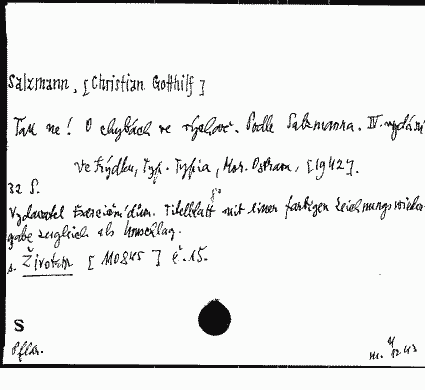 Salzmann, [Christian Gotthilf]
Tak ne! O chybách ve výchově. Podle Salzmanna. IV. vydání
Ve Frýdku, Typ. Typia, Mor. Ostrava, [1942].
32 S. 8°
Vydavatel Exerciční dům. Titelblatt mit einer farbigen Zeichnungswieder-
gabe zugleich als Umschlag.
s. Životem [110845] č. 15.
S
Pflar.